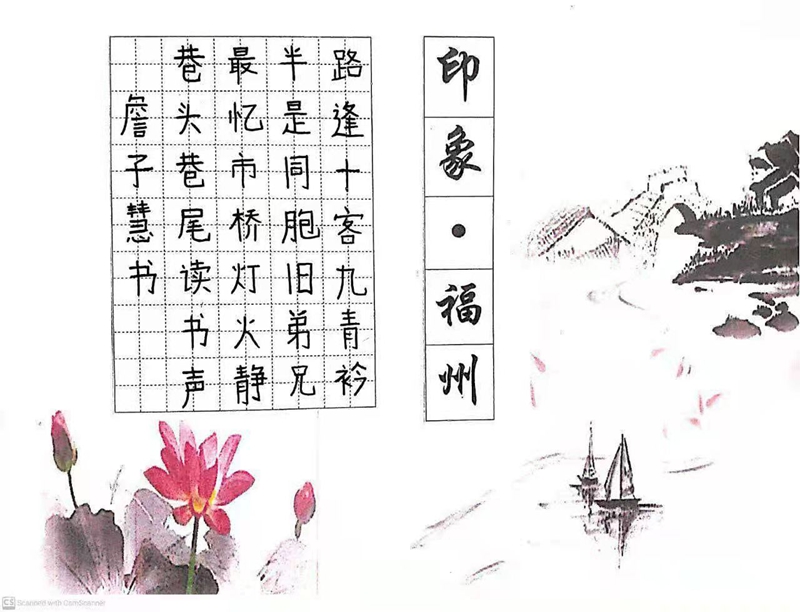 印象·福州
路逢十客九青衿
半是同胞旧弟兄
最忆市桥灯火静
巷头巷尾读书声
詹子慧书
CS Scanned with CamScanner